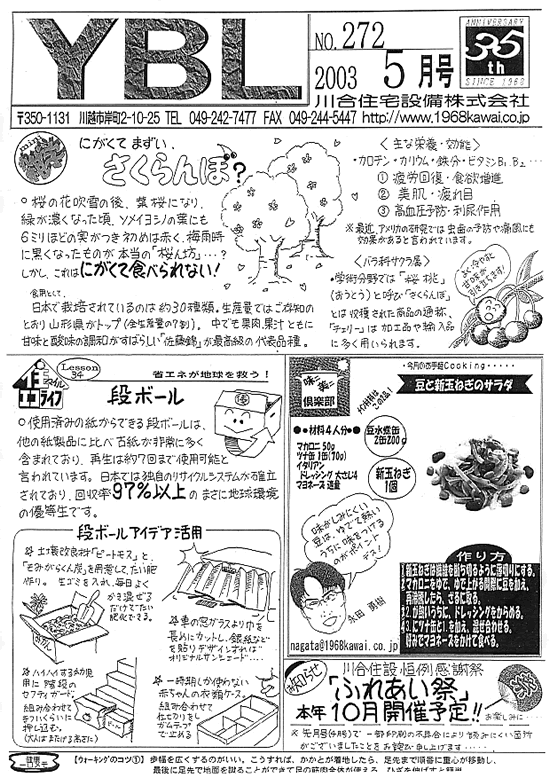 YBL
NO. 272
2003 5月号
ANNIVERSARY
35th
SINCE 1968
川合住宅設備株式会社
〒350-1131 川越市岸町2-10-25 TEL 049-242-7477 FAX 049-244-5447 http://www.1968kawai.co.jp
mini
にがくてまずい、
さくらんぼ?
○桜の花吹雪の後、葉桜になり、
緑が濃くなった頃、ソメイヨシノの葉にも
6ミリほどの実がつき初めは赤く、梅雨時
に黒くなったものが本当の「桜ん坊」…?
しかし、これはにがくて食べられない!
食用として、
日本で栽培されているのは約30種類。生産量ではご存知の
とおり山形県がトップ(全生産量の7割)。中でも果肉、果汁ともに
甘味と酸味の調和がすばらしい「佐藤錦」が最高級の代表品種。
<主な栄養・効能>
・カロテン・カリウム・鉄分・ビタミンB1、B2…
① 疲労回復・食欲増進
② 美肌・疲れ目
③ 高血圧予防・利尿作用
※最近、アメリカの研究では虫歯の予防や痛風にも
効果があると言われています。
<バラ科サクラ属>
・学術分野では「桜桃」
(おうとう)と呼び「さくらんぼ」
とは収穫された商品の通称、
「チェリー」は加工品や輸入品
に多く用いられます。
よく冷やすと
甘味が
引き立ちます!
Lesson 34
省エネが地球を救う!
スマイル
エコライフ
段ボール
○使用済みの紙からできる段ボールは、
他の紙製品に比べ古紙が非常に多く
含まれており、再生は約7回まで使用可能と
言われています。日本では独自のリサイクルシステムが確立
されており、回収率97%以上のまさに地球環境
の優等生です。
段ボールアイデア活用
土壌改良材「ピートモス」と、
「もみがらくん炭」を用意して、たい肥
作り。生ゴミを入れ、毎日よく
かき混ぜる
だけでたい
肥化できる。
車の窓ガラスより巾を
長めにカットし、銀紙などを
を貼りデザインすれば
オリジナルサンシェード…
ハイハイする幼児
用に階段の
セフティガード。
組み合わせて
すきまくらいに
押し込む。
(大人はまたげる高さに)
一時期しか使わない
赤ちゃんの衣類ケース。
組み合わせて
仕切りをし
ガムテープ
で止める
味と楽と美
倶楽部
今月のお手軽Cooking・・・・・
豆と新玉ねぎのサラダ
●●材料4人分●
マカロニ 50g
ツナ缶 1缶(70g)
イタリアン
ドレッシング 大さじ4
マヨネーズ 適量
豆水煮缶
2缶200g
新玉ねぎ
1個
味がしみにくい
豆は、ゆでて熱い
うちに味をつける
のがポイント
デス!
永田 勇樹
nagata@1968kawai.co.jp
作り方
お知らせ
川合住設 恒例感謝祭
「ふれあい祭」
本年10月開催予定!!
お楽しみに…
※先月(4月)号で一部印刷の不具合により読みにくい箇所
がございましたことをお詫び申し上げます……
健康一口メモ
【ウォーキングのコツ①】 歩幅を広くするのがいい。こうすれば、かかとが着地したら、足先まで順番に重心が移動し、